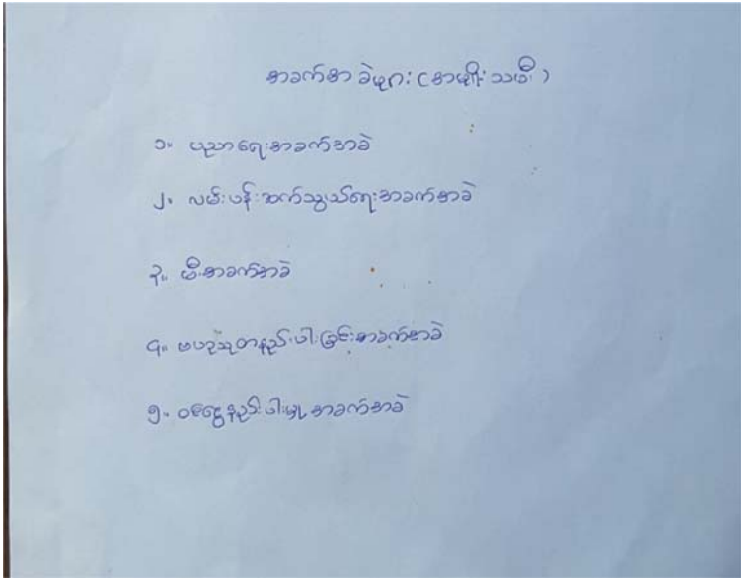 အခက်အခဲများ (အမျိုးသမီး)
၁။ ပညာရေးအခက်အခဲ
၂။ လမ်းပန်းဆက်သွယ်ရေးအခက်အခဲ
၃။ မီးအခက်အခဲ
၄။ ဗဟုသုတနည်းပါးခြင်းအခက်အခဲ
၅။ ဝင်ငွေနည်းပါးမှုအခက်အခဲ